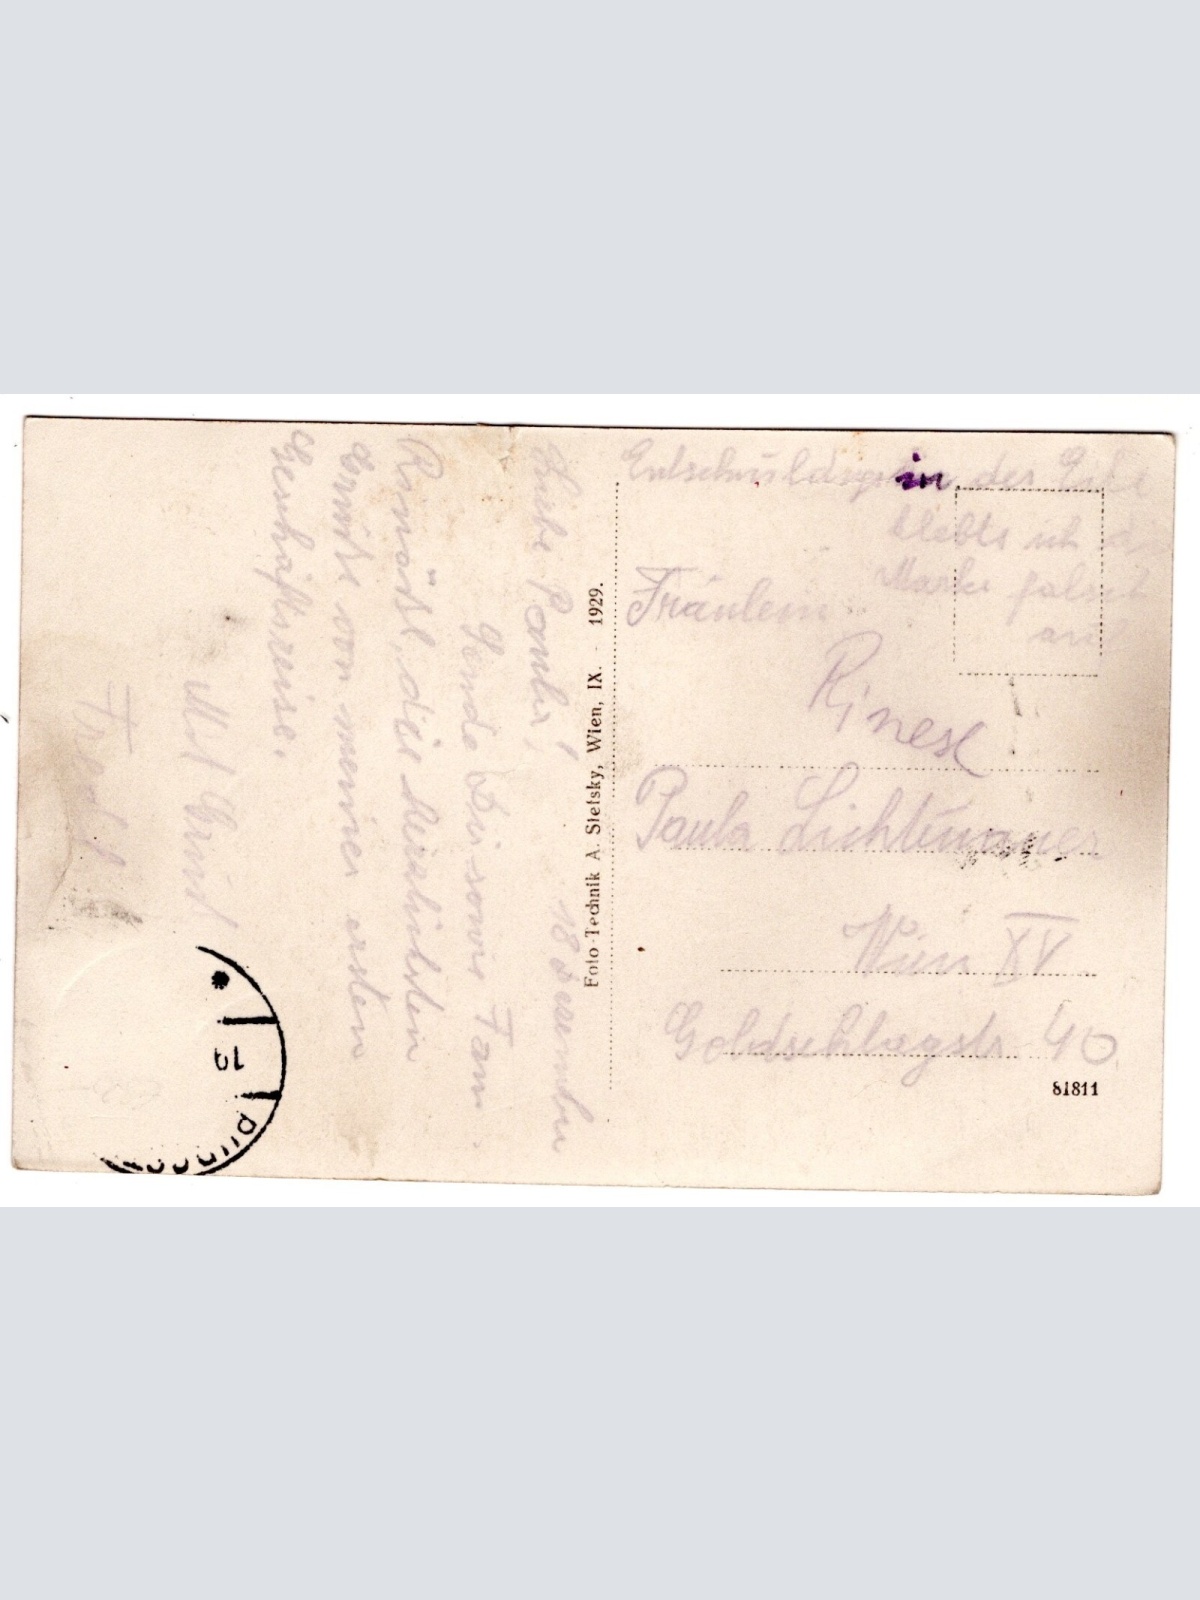 Entschuldige in der Eile
klebte ich
Marke falsch
auf
Fräulein
Rinesl
Paula Lichtmauer
Wien XV
Goldschlagstr. 40
81811
Foto-Technik A. Stefsky, Wien, IX. - 1929.
Liebe Paula!
18 Dezember
Sende Dir sowie Fam.
die herzlichsten
Grüße von meiner ersten
Geschäftsreise.
Mit Gruß
Fredl
19